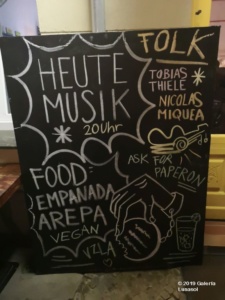 HEUTE
MUSIK
20Uhr
FOLK
TOBIAS
THIELE
NICOLAS
MIQUEA
ASK FOR
PAPERON
FOOD:
EMPANADA
AREPA
VEGAN
VZLA
© 2019 Galería